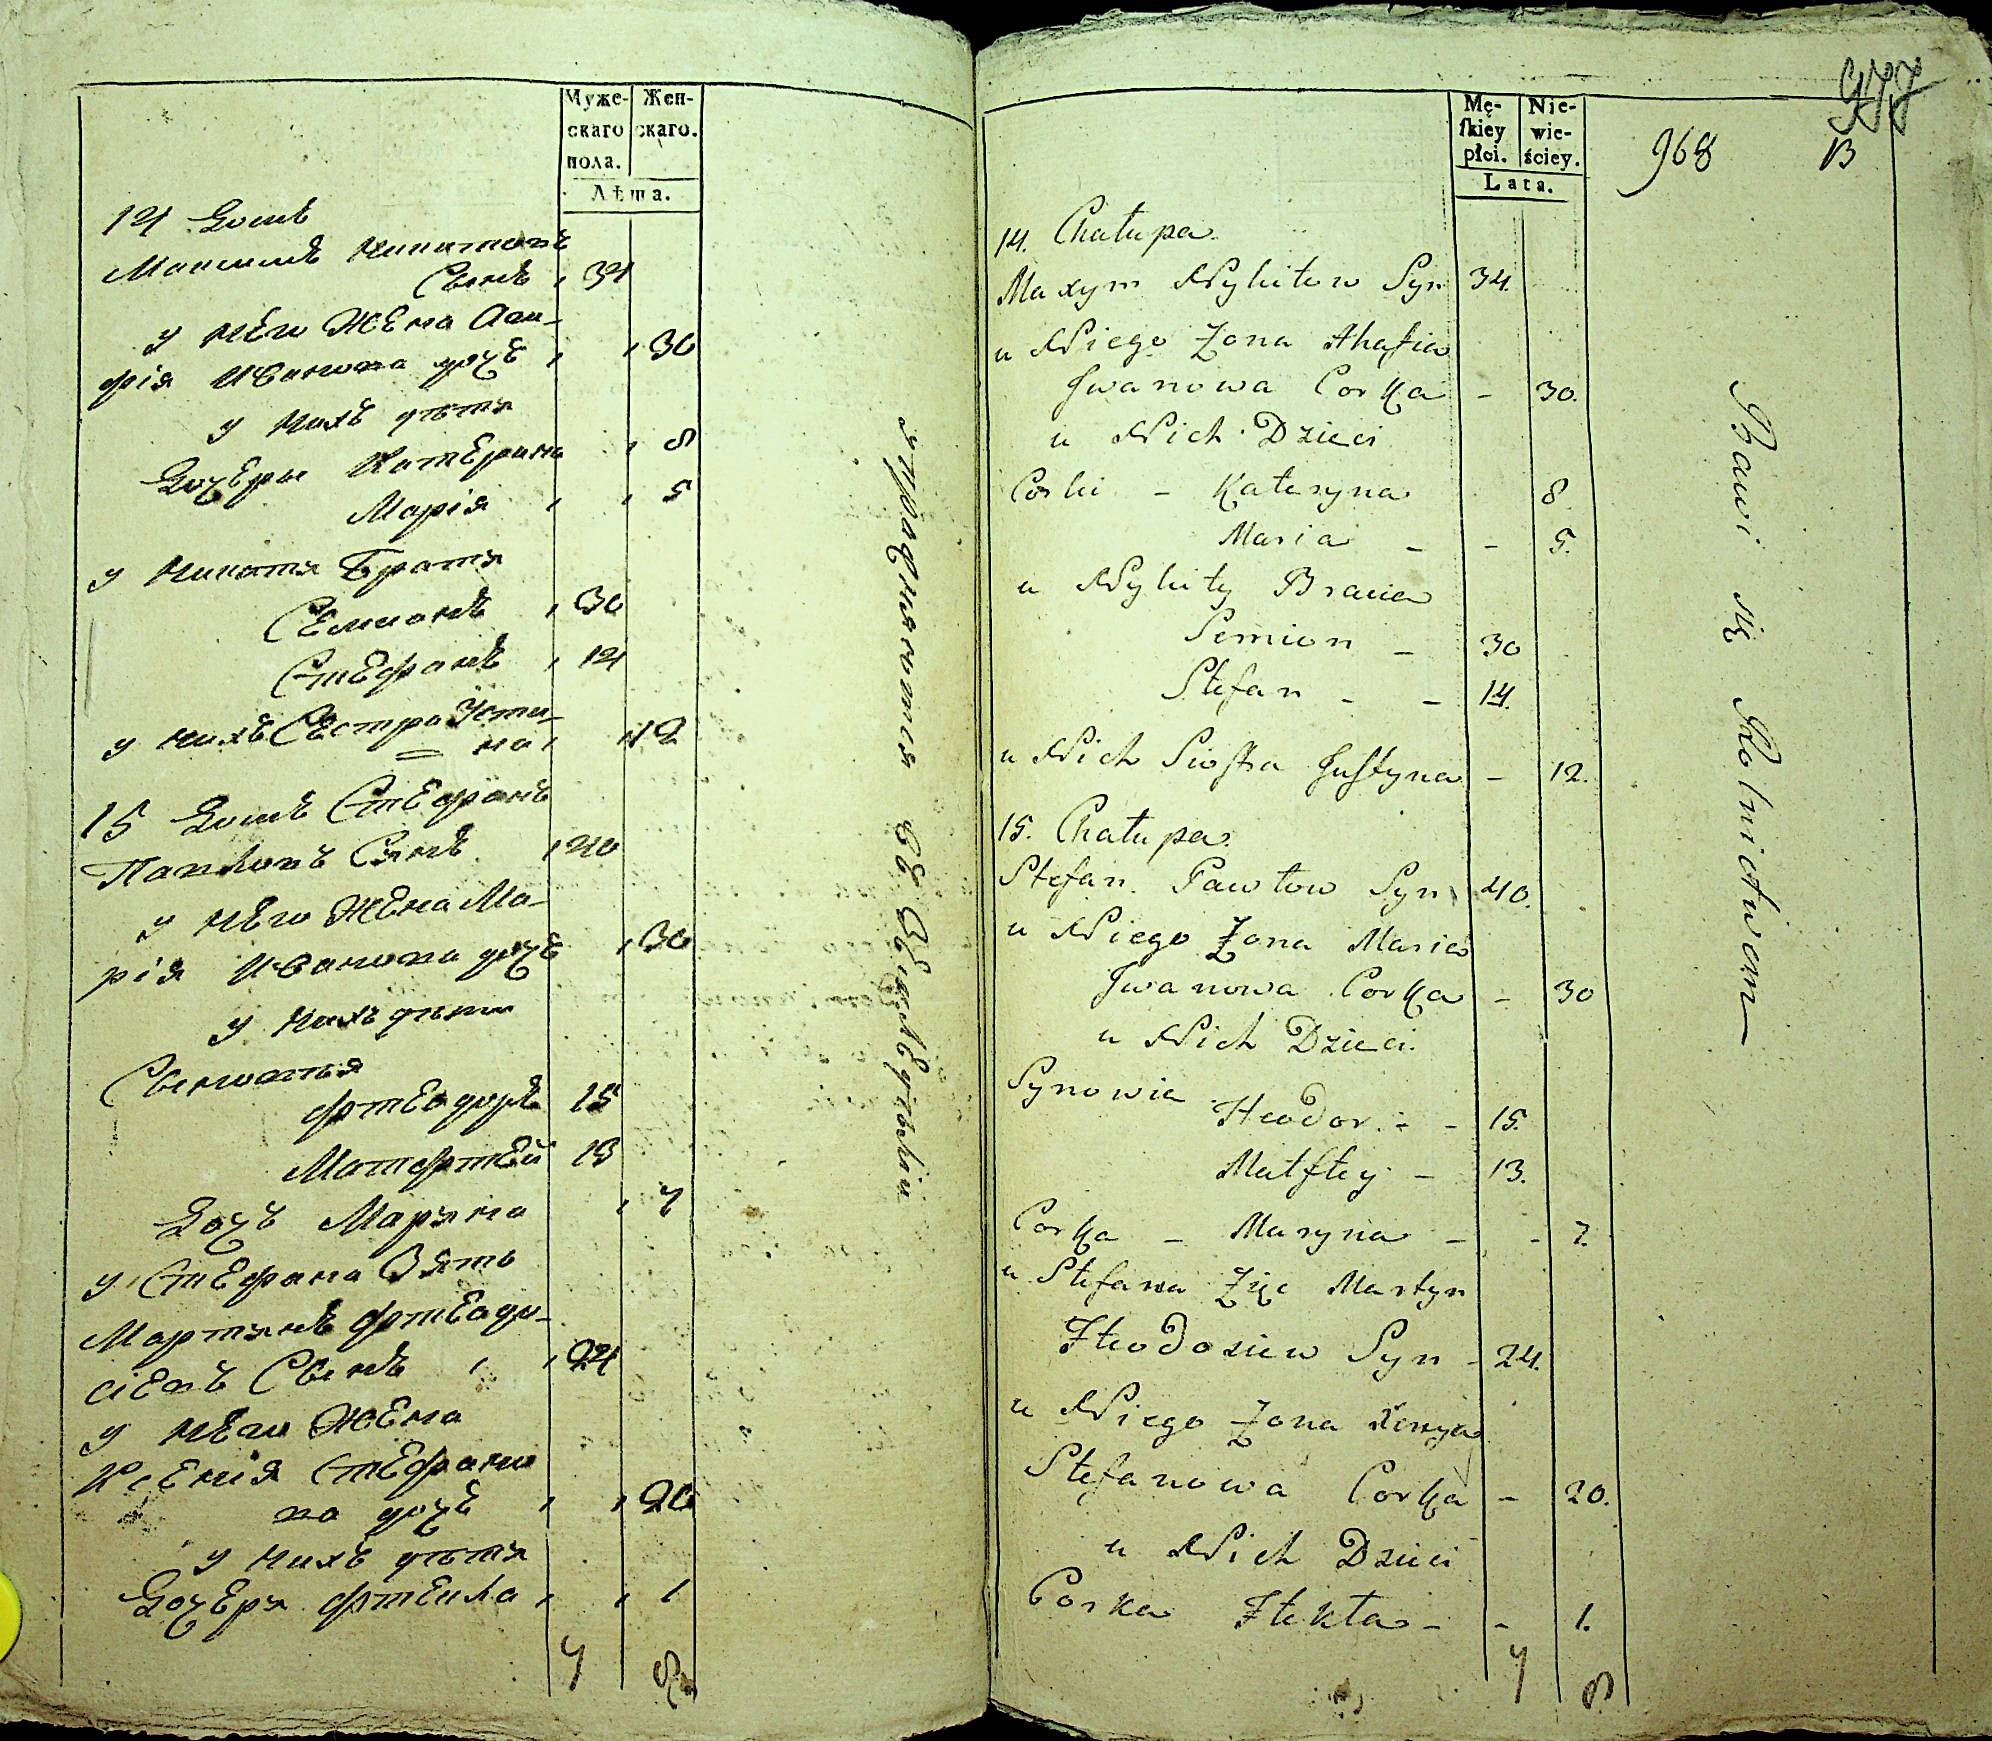 Муже-
скаго
пола.
Жен-
скаго.
Лѣта.
14 Домъ
Максимъ Никитовъ
Сынъ , 34
у Него Жена Ага-
фія Иванова дочь , , 30
у Нихъ дѣти
Дочери Катерина , 8
Марія , , 5
у Никити Братя
Семионъ , 30
Стефанъ , 14
у нихъ Сестра Усти-
на , , 12
15 Домъ Стефанъ
Павловъ Синъ , 40
у Него Жена Ма-
рія Иванова дочь , 30
у Нихъ дѣти
Сыновья
Фтеодоръ 15
Матфтей 13
Дочь Марина , 7
у Стефана Зять
Мартинъ Фтеодо-
сіевъ Сынъ , , 24
у Него Жена
Ксенія Стефано-
ва дочь , , 20
у Нихъ дѣти
Дочеря Фтекла , , 1
7 8
упражняются въ Земледѣліи
Mę-
skiey
płci.
Nie-
wie-
ściey.
Lata.
977
968 13
14. Chałupa.
Maxym Nykitow Syn 34.
u Niego Żona Ahafia
Jwanowa Corka - 30.
u Nich Dzieci
Corki - Kateryna 8.
Maria - - 5.
u Nykity Bracia
Semion - 30
Stefan - - 14.
u Nich Siostra Justyna - 12.
15. Chałupa.
Stefan Pawłow Syn 40.
u Niego Żona Maria
Jwanowa Corka - 30
u Nich Dzieci.
Synowie
Fteodor - - 15.
Matftey - 13.
Corka - Maryna - - 7.
u Stefana Zięc Martyn
Fteodosiew Syn - 24.
u Niego Żona Xenya
Stefanowa Corka - 20.
u Nich Dzieci
Corka Ftekta - - 1.
7 8
Bawi się Rolnictwem